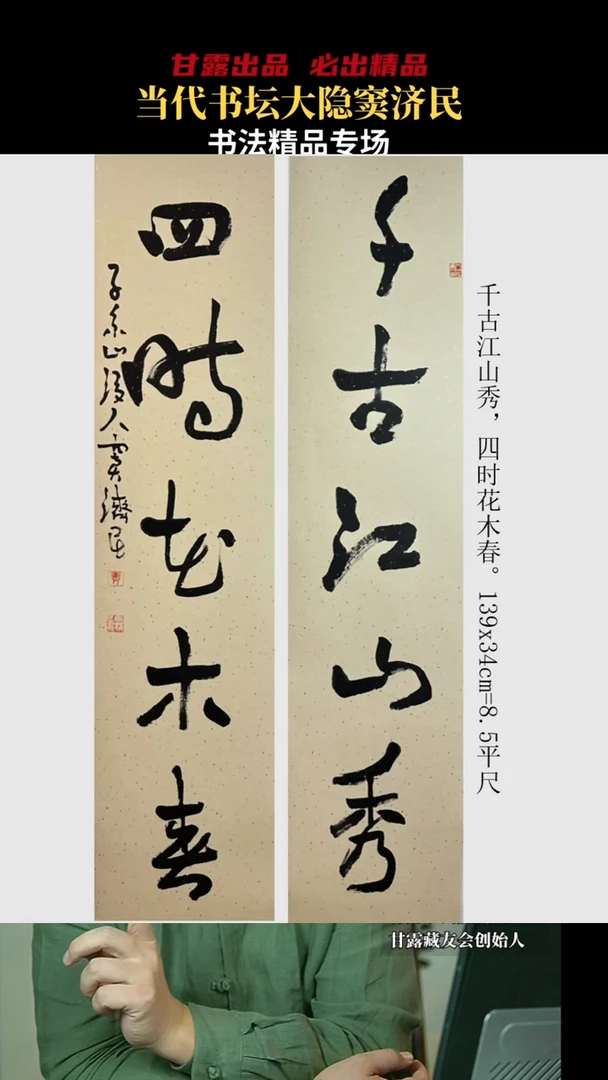 甘露出品 必出精品
当代书坛大隐窦济民
书法精品专场
千古江山秀
四时花木春
千古江山秀，四时花木春。139x34cm=8.5平尺
甘露藏友会创始人